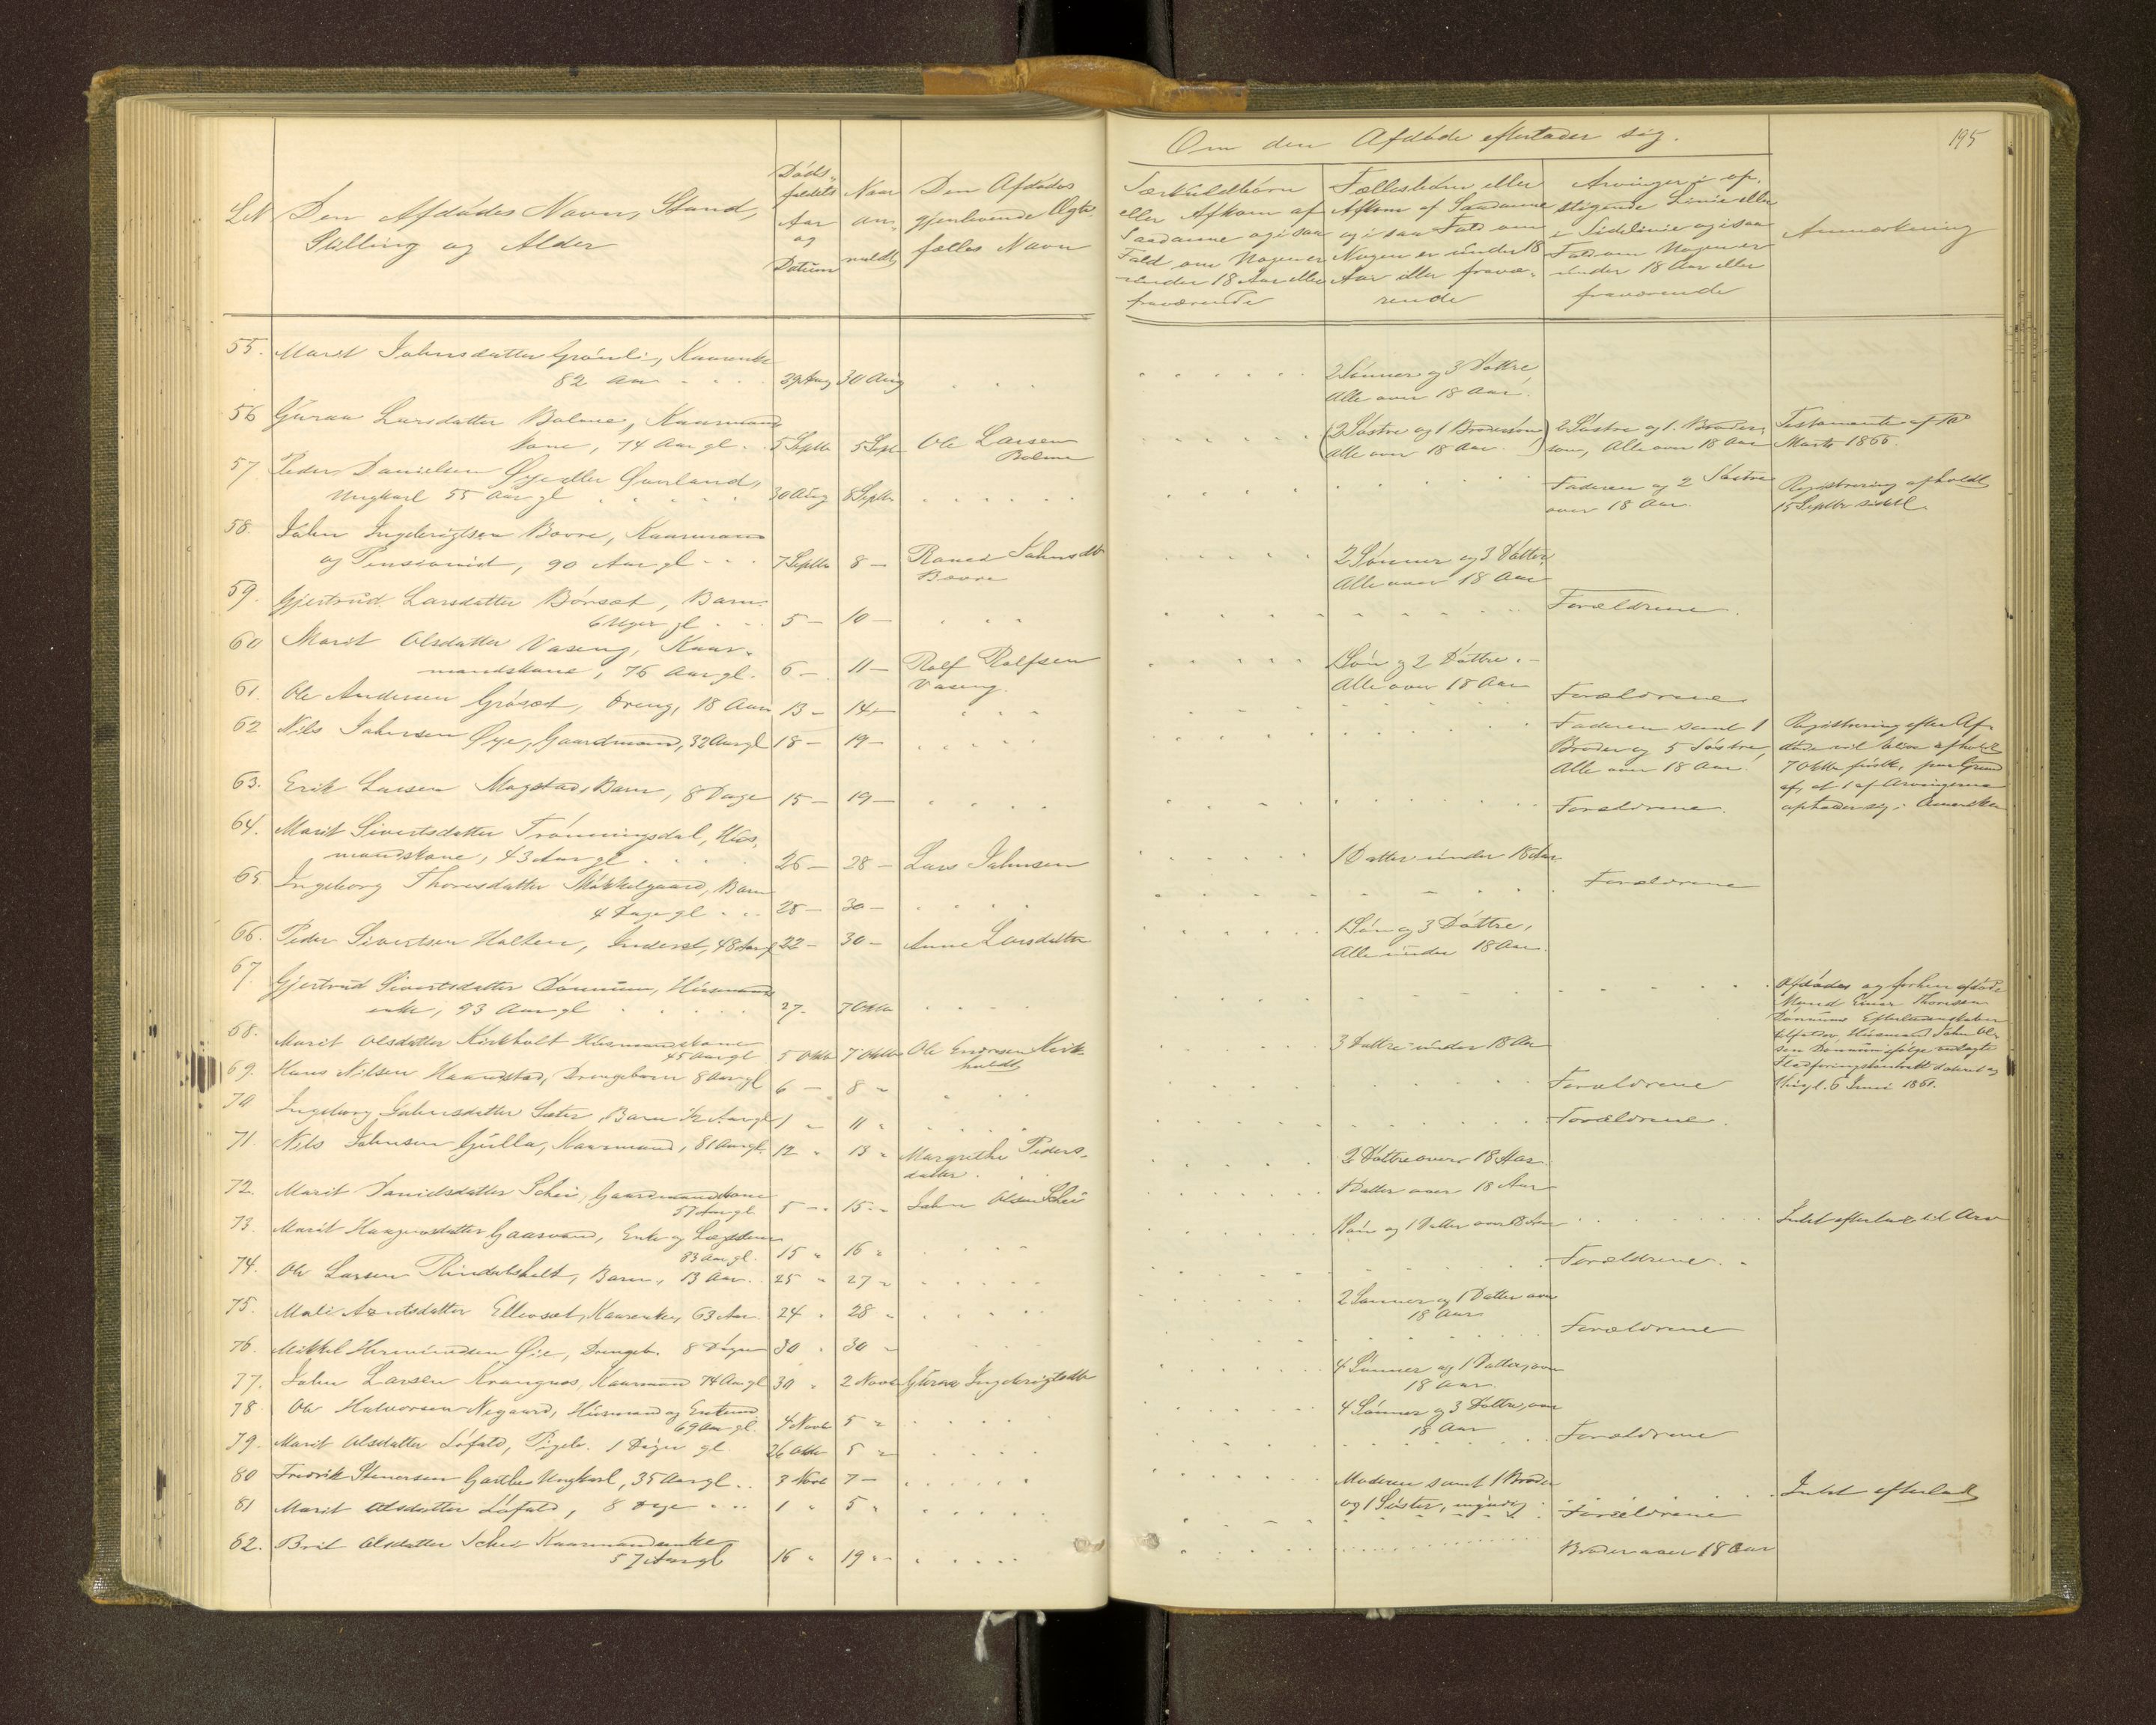 Om den Afdøde efterlader sig.
195
LN
Den Afdødes Navn, Stand,
Stilling og Alder
Døds-
faldets
Aar
og
Datum
Naar
an-
meldt
Den Afdødes
gjenlevende Ægte-
fælles Navn
Særkuldbørn
eller Afkom af
Saadanne og i saa
Fald om Nogen er
under 18 Aar eller
fraværende
Fællesbørn eller
Afkom af Saadanne
og i saa Fald om
Nogen er under 18
Aar eller fravæ-
rende
Arvinger i op-
stigende Linie eller
i Sidelinie og i saa
Fald om Nogen er
under 18 Aar eller
fraværende
Anmærkning
55. Marit Jahnsdatter Grønli, Kaarenke
82 Aar 29 Aug 30 Aug
2 Sønner og 3 Døttre,
Alle over 18 Aar.
56 Guraa Larsdatter Bolme, Kaarmands
Kone, 74 Aar gl. 5 Septbr 5 Sept Ole Larsen
Bolme
(2 Søstre og 1 Brodersøn
Alle over 18 Aar.)
2 Søstre og 1 Broder-
søn, Alle over 18 Aar
Testamente af
Marts 1866.
57 Peder Danielsen Øye eller Qvenland,
Ungkarl 55 Aar gl 30 Aug 8 Septbr
Faderen og 2 Søstre
over 18 Aar.
Registrering afholdt
15 Septbr
58. Jahn Ingebrigtsen Bævre, Kaarmand
og Pensionist, 90 Aar gl 7 Septbr 8 — Jahnsdtr
Bævre
2 Sønner og 3 Døttre,
Alle over 18 Aar
59. Gjertrud Larsdatter Børset, Barn
6 Uger gl 5 — 10 —
Forældrene.
60 Marit Olsdatter Vaseng, Kaar-
mandskone, 76 Aar gl. 6 — 11 — Rolf Rolfsen
Vaseng.
1 Søn og 2 Døttre.
Alle over 18 Aar
61. Ole Andersen Grøset, Dreng, 18 Aar 13 — 14 —
Forældrene
62 Nils Jahnsen Øye, Gaardmand, 32 Aar gl 18 — 19 —
Faderen samt 1
Broder og 5 Søstre,
Alle over 18 Aar.
Registrering efter Af-
døde vil blive afholdt
7 Oktbr førstk, paa Grund
af, at 1 af Arvingerne
opholder sig i Amerika
63. Erik Larsen Mogstad, Barn, 8 Dage 15 — 19 —
Forældrene.
64. Marit Sivertsdatter Trønningsdal, Hus-
mandskone, 43 Aar gl 26 — 28 — Lars Jahnsen
1 Datter under 18 Aar
65 Ingeborg Thoresdatter Barn
4 Dage gl 28 — 30 —
Forældrene
66. Peder Sivertsen Holten, Inderst, 48 Aar gl 22 — 30 — Anne Larsdatter
1 Søn og 3 Døttre,
Alle under 18 Aar.
67 Gjertrud Sivertsdatter Dønnum, Husmands
enke, 93 Aar gl 27 — 7 Oktbr
Afdødes og forhen afdøde
Mand Einar Thoresen
Dønnums Efterladenskaber
tilfalder Husmand Jahn Ol-
sen Dønnum ifølge vedlagte
dateret og
thingl. 6 Juni 1861.
68. Marit Olsdatter Kirkholt Husmandskone
45 Aar gl 5 Oktbr 7 Oktbr Ole Endresen Kirk-
holdt
3 Døttre under 18 Aar
69. Hans Nilsen Haanstad, Drengebarn 8 Aar gl 6 — 8 "
Forældrene
70 Ingeborg Jahnsdatter Sæter, Barn 1/2 Aar gl 1 " 11 "
Forældrene.
71. Nils Jahnsen Gulla, Kaarmand, 81 Aar gl. 12 " 13 " Margrethe Peders-
datter.
2 Døttre over 18 Aar.
72. Marit Danielsdatter Schei, Gaardmandskone
57 Aar gl 5 — 15 — Jahn Olsen Schei
1 Datter over 18 Aar
73. Marit Haagensdatter Gaasvand, Enke og Lægdslem
83 Aar gl. 15 " 16 "
1 Søn og 1 Datter over 18 Aar
Intet efterladt til Arv
74. Ole Larsen Rindalsholt, Barn, 13 Aar 25 " 27 "
Forældrene.
75. Mali Arntsdatter Ellevset, Kaarenke, 63 Aar 24 " 28 "
2 Sønner og 1 Datter over
18 Aar
76. Mikkel Hermundsen Øie, Drengeb. 8 Døgn 30 " 30 "
Forældrene
77. Jahn Larsen Krangnes, Kaarmand 74 Aar gl 30 " 2 Novbr Guraa Ingebrigtsdtr
4 Sønner og 1 Datter, over
18 Aar.
78 Ole Halvorsen Negaard, Husmand og Enkemd
69 Aar gl. 4 Novbr 5 "
4 Sønner og 3 Døttre, over
18 Aar
79. Marit Olsdatter Løfald, Pigeb. 1 Døgn gl. 26 Oktbr 5 "
Forældrene
80 Fredrik Stenersen Garthe Ungkarl, 35 Aar gl. 3 Novb 7 —
Moderen samt 1 Broder
og 1 Søster, myndig
Intet efterladt
81 Marit Olsdatter Løfald, 8 Dage 1 " 5 "
Forældrene
82. Brit Olsdatter Schei Kaarmandsenke
57 Aar gl 16 " 19 "
Broder over 18 Aar